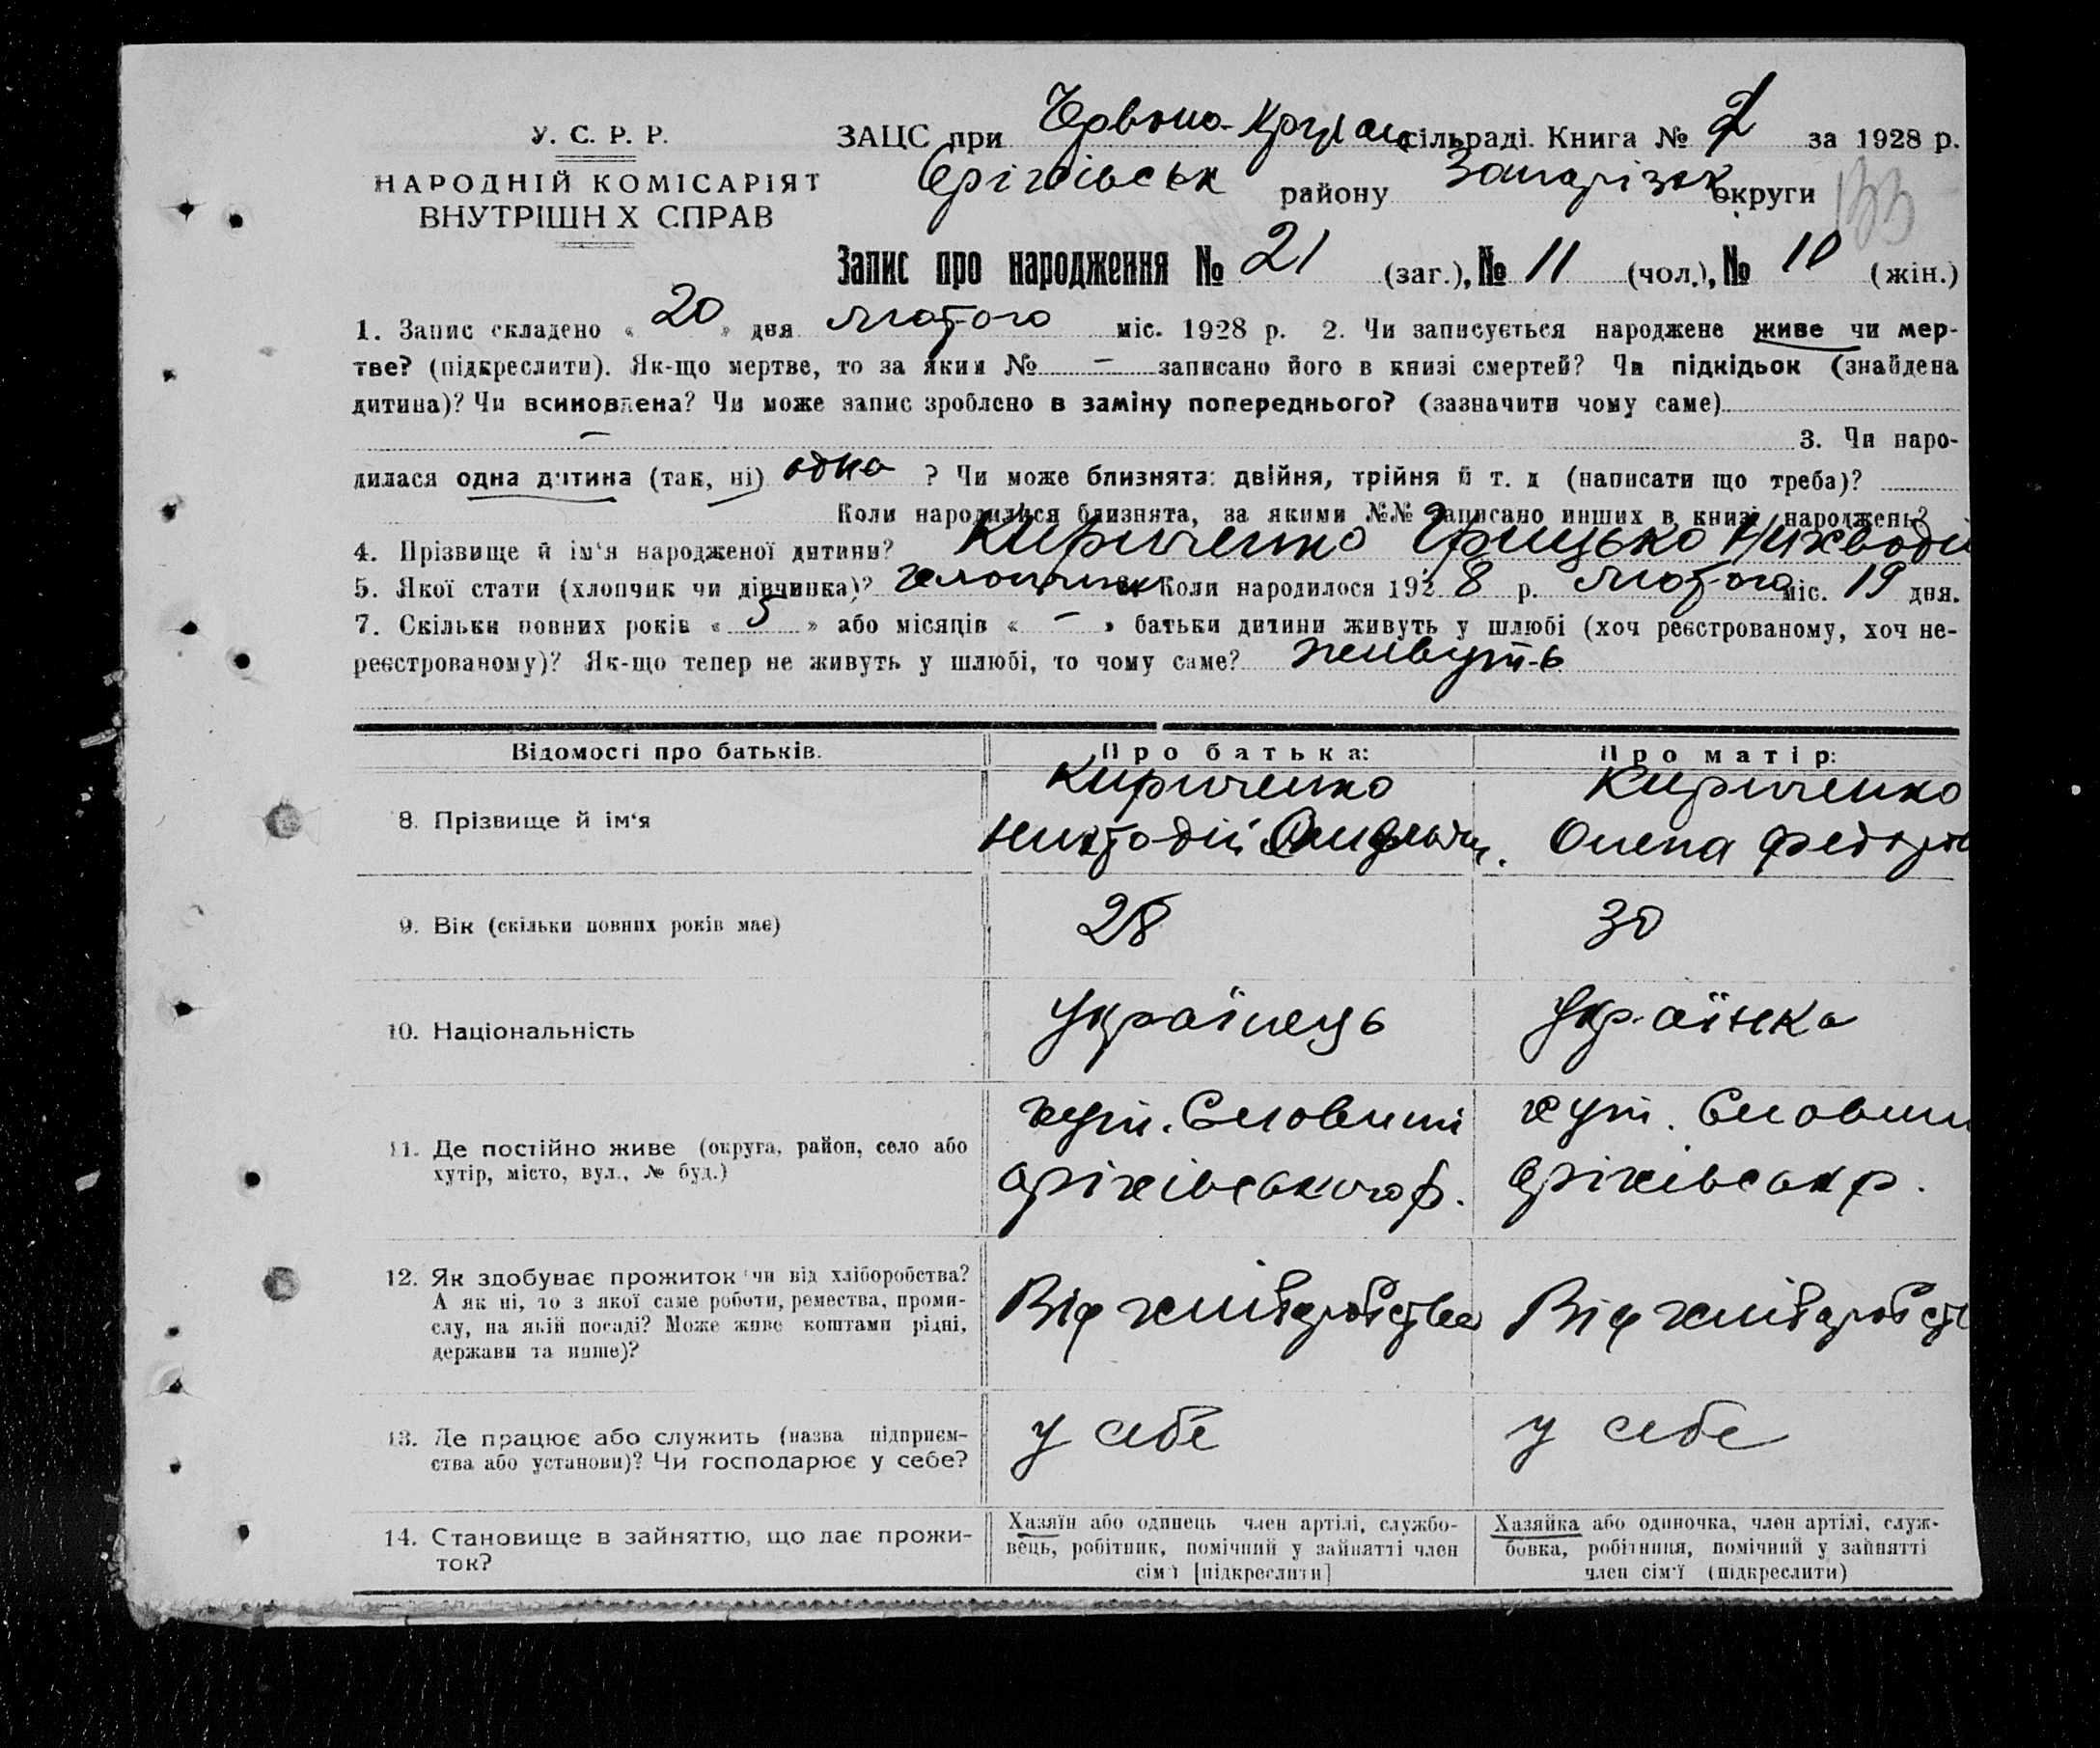 У. С. Р. Р.
НАРОДНІЙ КОМІСАРІЯТ
ВНУТРІШН Х СПРАВ
ЗАЦС при Червоно- сільраді. Книга № 2 за 1928 р.
Оріхівськ району Запорізьк округи
133
Запис про народження № 21 (заг.), № 11 (чол.), № 10 (жін.)
1. Запис складено « 20 » дня лютого міс. 1928 р. 2. Чи записується народжене живе чи мер-
тве? (підкреслити). Як-що мертве, то за яким № — записано його в книзі смертей? Чи підкідьок (знайдена
дитина)? Чи всиновлена? Чи може запис зроблено в заміну попереднього? (зазначити чому саме)
— 3. Чи наро-
дилася одна дитина (так, ні) одна ? Чи може близнята: двійня, трійня й т. д (написати що треба)?
Коли народилися близнята, за якими №№ записано инших в книзі народжень?
4. Прізвище й ім'я народженої дитини? Кириченко Грицько
5. Якої стати (хлопчик чи дівчинка)? хлопчик 6. Коли народилося 192 8 р. лютого міс. 19 дня.
7. Скільки повних років « 5 » або місяців « — » батьки дитини живуть у шлюбі (хоч реєстрованому, хоч не-
реєстрованому)? Як-що тепер не живуть у шлюбі, то чому саме? живуть
Відомості про батьків. Про батька: Про матір:
8. Прізвище й ім'я Кириченко Кириченко
Олена
9. Вік (скільки повних років має) 28 30
10. Національність Українець Українка
11. Де постійно живе (округа, район, село або
хутір, місто, вул., № буд.)
хут. хут.
Оріхівського р. Оріхівськ р.
12. Як здобуває прожиток чи від хліборобства?
А як ні, то з якої саме роботи, ремества, проми-
слу, на якій посаді? Може живе коштами рідні,
держави та инше)?
Від хліборобства Від хліборобст
13. Де працює або служить (назва підприєм-
ства або установи)? Чи господарює у себе?
у себе у себе
14. Становище в зайняттю, що дає прожи-
ток?
Хазяїн або одинець член артілі, службо-
вець, робітник, помічний у зайнятті член
сім'ї [підкреслити]
Хазяйка або одиночка, член артілі, служ-
бовка, робітниця, помічний у зайнятті
член сім'ї (підкреслити)